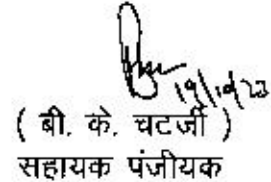 19/10/22
( बी. के. चटर्जी )
सहायक पंजीयक